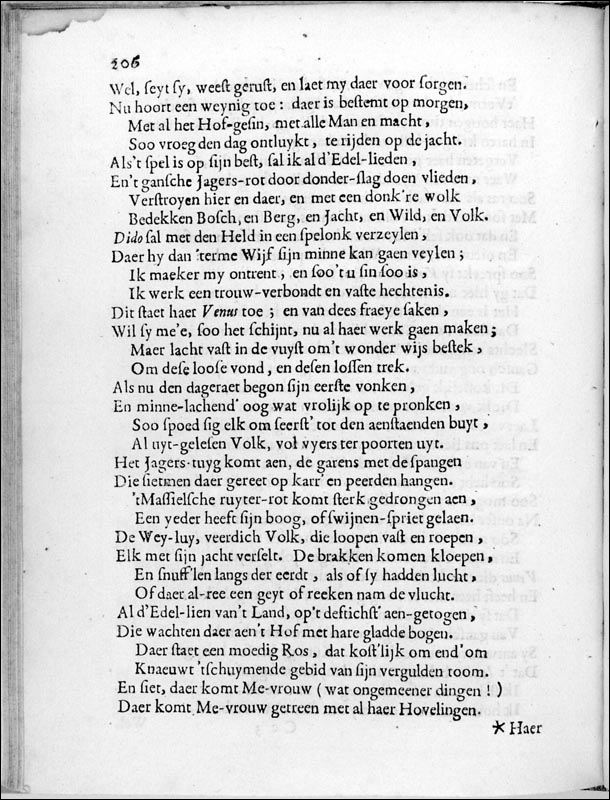 206
Wel, seyt sy, weest gerust, en laet my daer voor sorgen.
Nu hoort een weynig toe: daer is bestemt op morgen,
Met al het Hof-gesin, met alle Man en macht,
Soo vroeg den dag ontluykt, te rijden op de jacht.
Als't spel is op sijn best, sal ik al d'Edel-lieden,
En't gansche Jagers-rot door donder-slag doen vlieden,
Verstroyen hier en daer, en met een donk're wolk
Bedekken Bosch, en Berg, en Jacht, en Wild, en Volk.
Dido sal met den Held in een spelonk verzeylen,
Daer hy dan 'terme Wijf sijn minne kan gaen veylen;
Ik maeker my ontrent, en soo't u sin soo is,
Ik werk een trouw-verbondt en vaste hechtenis.
Dit staet haer Venus toe; en van dees fraeye saken,
Wil sy me'e, soo het schijnt, nu al haer werk gaen maken;
Maer lacht vast in de vuyst om't wonder wijs bestek,
Om dese loose vond, en desen lossen trek.
Als nu den dageraet begon sijn eerste vonken,
En minne-lachend' oog wat vrolijk op te pronken,
Soo spoed sig elk om seerst' tot den aenstaenden buyt,
Al uyt-gelesen Volk, vol vyers ter poorten uyt.
Het Jagers-tuyg komt aen, de garens met de spangen
Die sietmen daer gereet op karr' en peerden hangen.
'tMassielsche ruyter-rot komt sterk gedrongen aen,
Een yeder heeft sijn boog, of swijnen-spriet gelaen.
De Wey-luy, veerdich Volk, die loopen vast en roepen,
Elk met sijn jacht verselt. De brakken komen kloepen,
En snuff'len langs der eerdt, als of sy hadden lucht,
Of daer al-ree een geyt of reeken nam de vlucht.
Al d'Edel-lien van't Land, op't deftichst' aen-getogen,
Die wachten daer aen't Hof met hare gladde bogen.
Daer staet een moedig Ros, dat kost'lijk om end' om
Knaeuwt 'tschuymende gebid van sijn vergulden toom.
En siet, daer komt Me-vrouw (wat ongemeener dingen!)
Daer komt Me-vrouw getreen met al haer Hovelingen.
* Haer